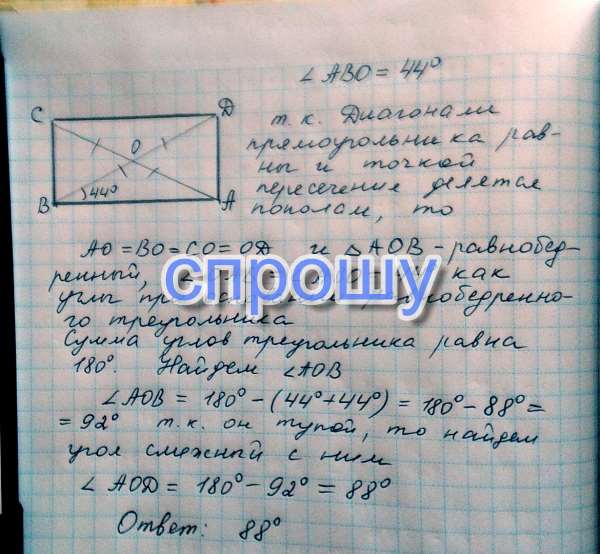 ∠ABO = 44°
C
D
O
44°
B
A
т.к. Диагонали
прямоугольника рав-
ны и точкой
пересечение делятся
пополам, то
AO = BO = CO = OD и △AOB - равнобед-
ренный,
как
спрошу
углы
го треугольника
Сумма углов треугольника равна
180°. Найдем ∠AOB
∠AOB = 180° - (44° + 44°) = 180° - 88° =
= 92° т.к. он тупой, то найдем
угол смежный с ним
∠AOD = 180° - 92° = 88°
Ответ: 88°